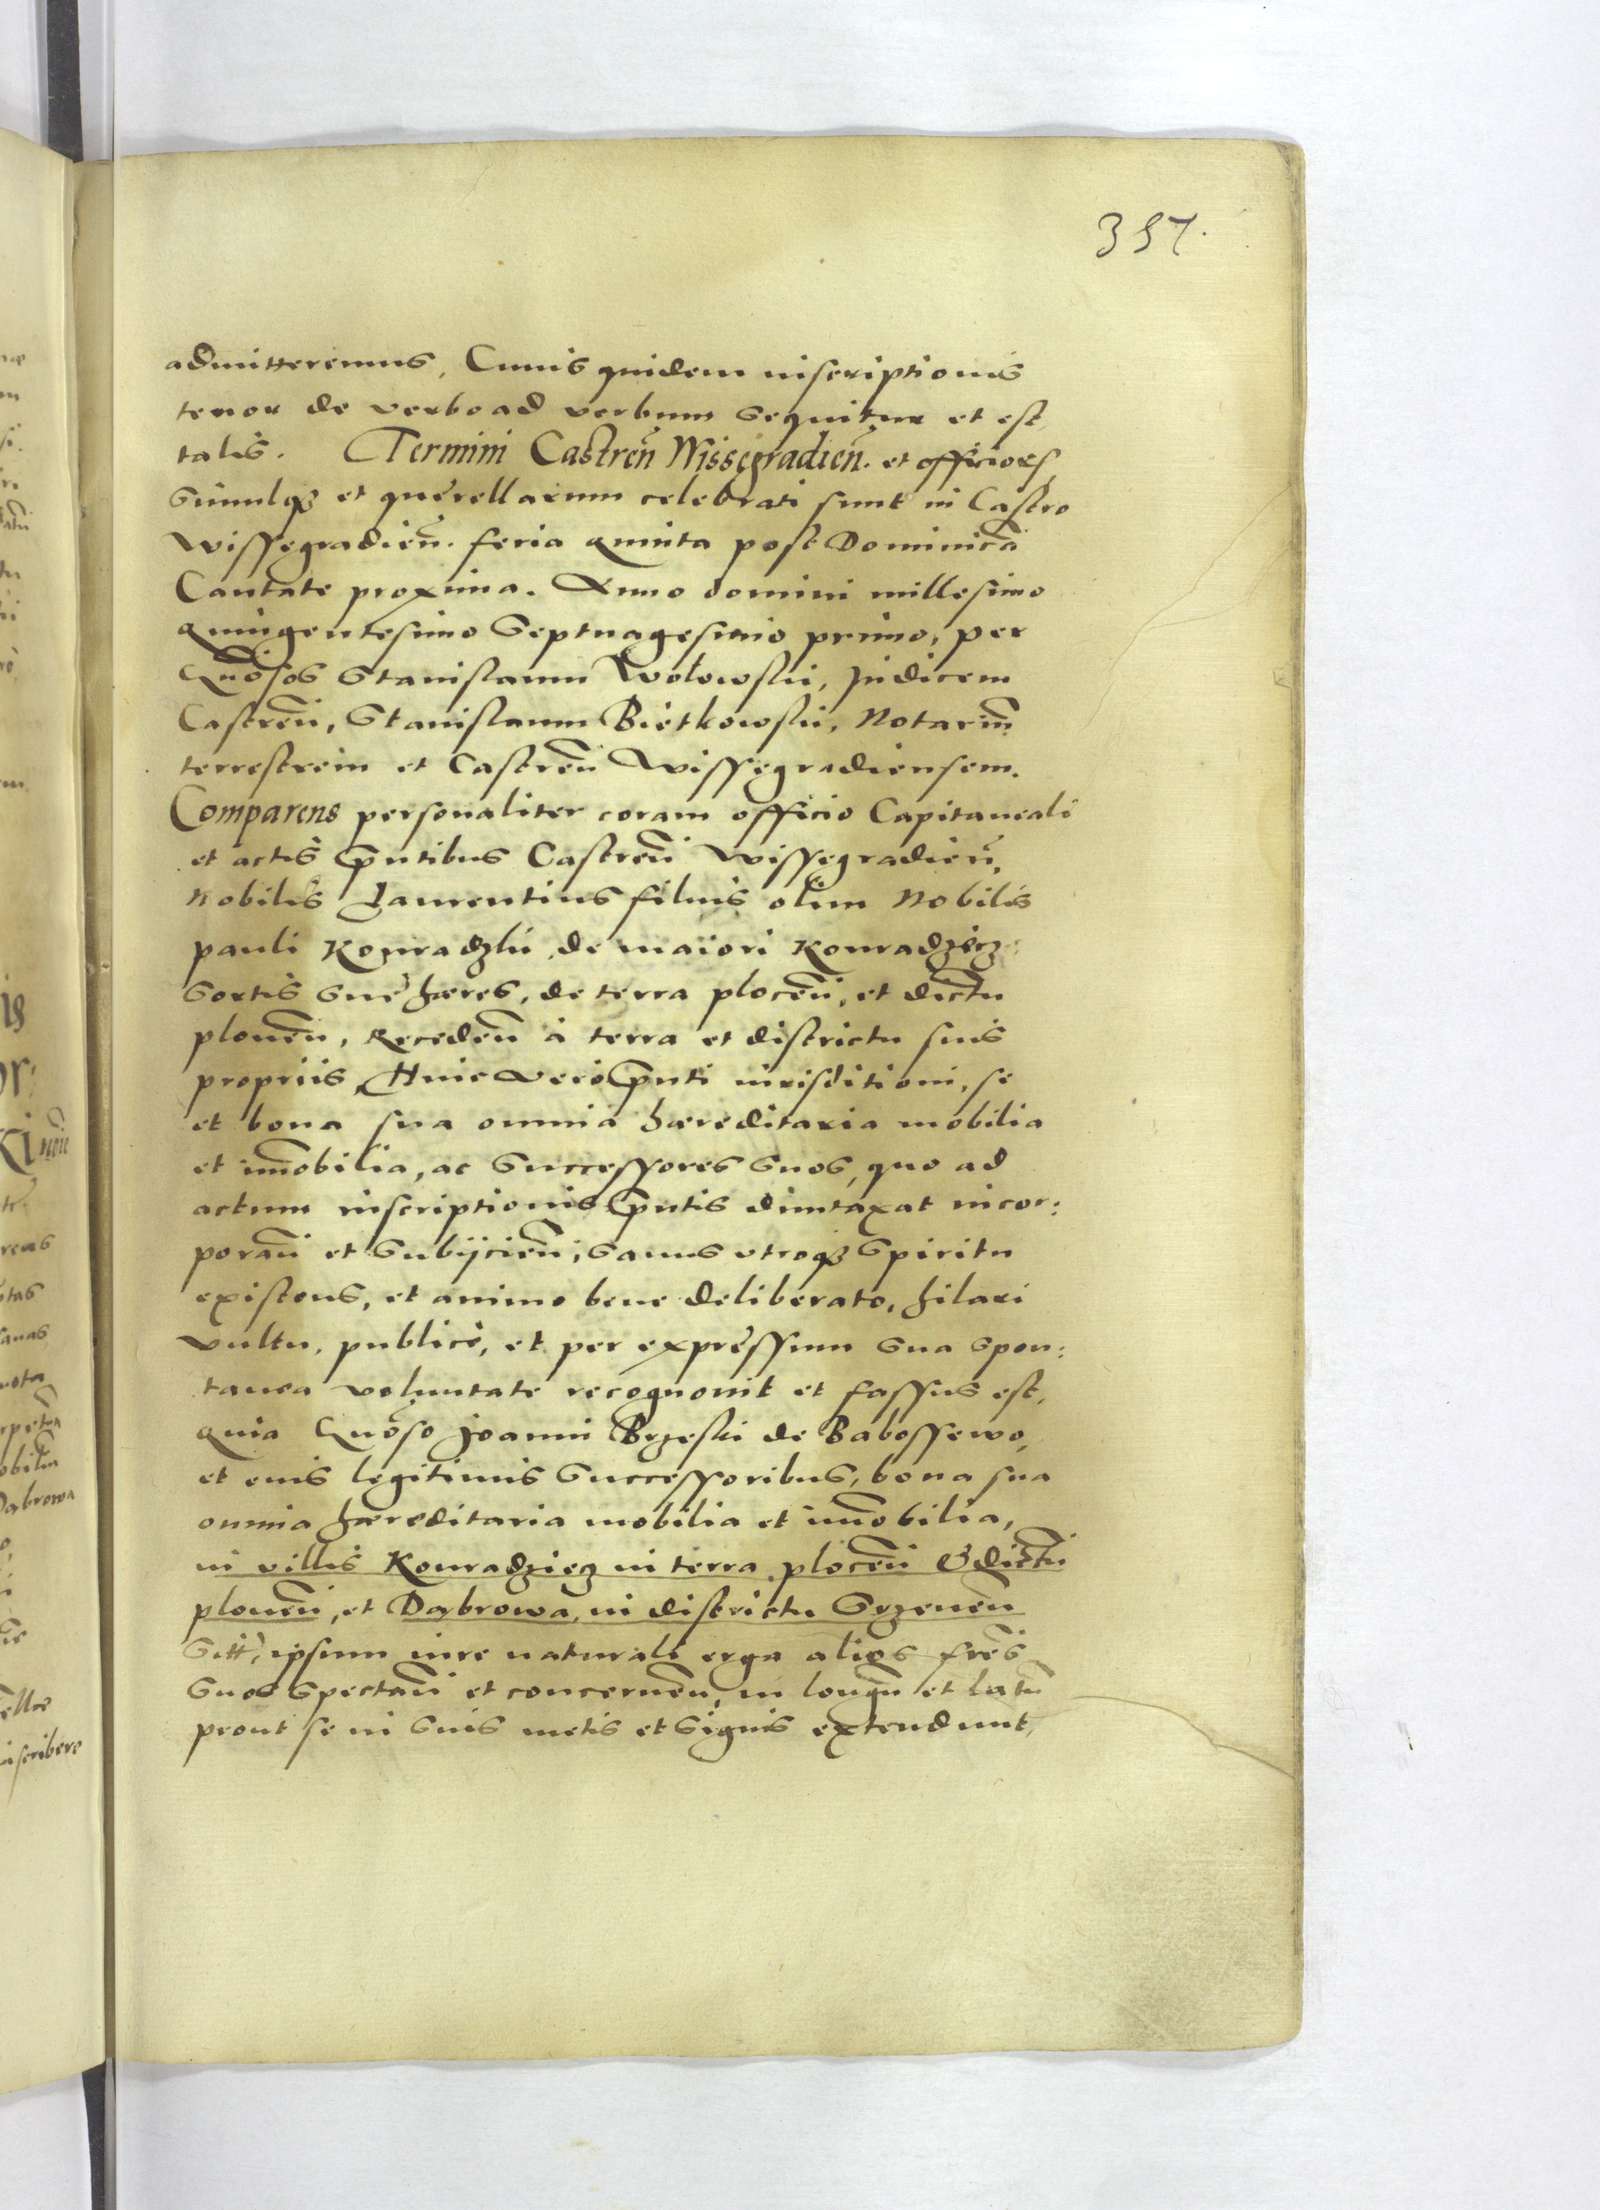 357.
admitteremus, Cuius quidem inscriptionis
tenor de verbo ad verbum sequitur et est
talis. Termini Castren̄ Wissegradien̄. et officiorꝭ
simulqꝫ et querellarum celebrati sunt in Castro
Wissegradien̄. feria quinta post Dominicā
Cantate proxima. Anno domini millesimo
quingentesimo Septuagesimo primo, per
Gn̄osos Stanislaum Wolowski, Iudicem
Castren̄, Stanislaum Bietkowski, Notariū
terrestrem et Castren̄ Wissegradiensem.
Comparens personaliter coram officio Capitaneali
et actis p̄ntibus Castren̄ Wissegradien̄,
Nobilis Laurentius filius olim Nobilis
pauli Konradzki, de maiori Konradziecz
sortis suę hæres, de terra plocen̄, et dictu
plonen̄, Receden̄ à terra et districtu suis
propriis, Huic vero p̄nti iurisditioni, se
et bona sua omnia hæreditaria mobilia
et im̄obilia, ac Successores suos, quo ad
actum inscriptionis p̄ntis dumtaxat incor:
poran̄ et Subijcien̄, Sanus utroqꝫ Spiritu
existens, et animo bene deliberato, hilari
vultu, publicè, et per expressum sua spon:
tanea voluntate recognouit et fassus est,
quia Gn̄oso Joanni Brzeski de Babossewo,
et eius legitimis Successoribus, bona sua
omnia hæreditaria mobilia et im̄obilia,
in villis Konradziecz in terra plocen̄ & dictu
plonen̄, et Dąbrowa, in districtu Srzenen̄
Sitt, ipsum iure naturali erga alios fr̄es
suos spectan̄ et concernen̄, in longū et latū
prout se in suis metis et signis extendunt,